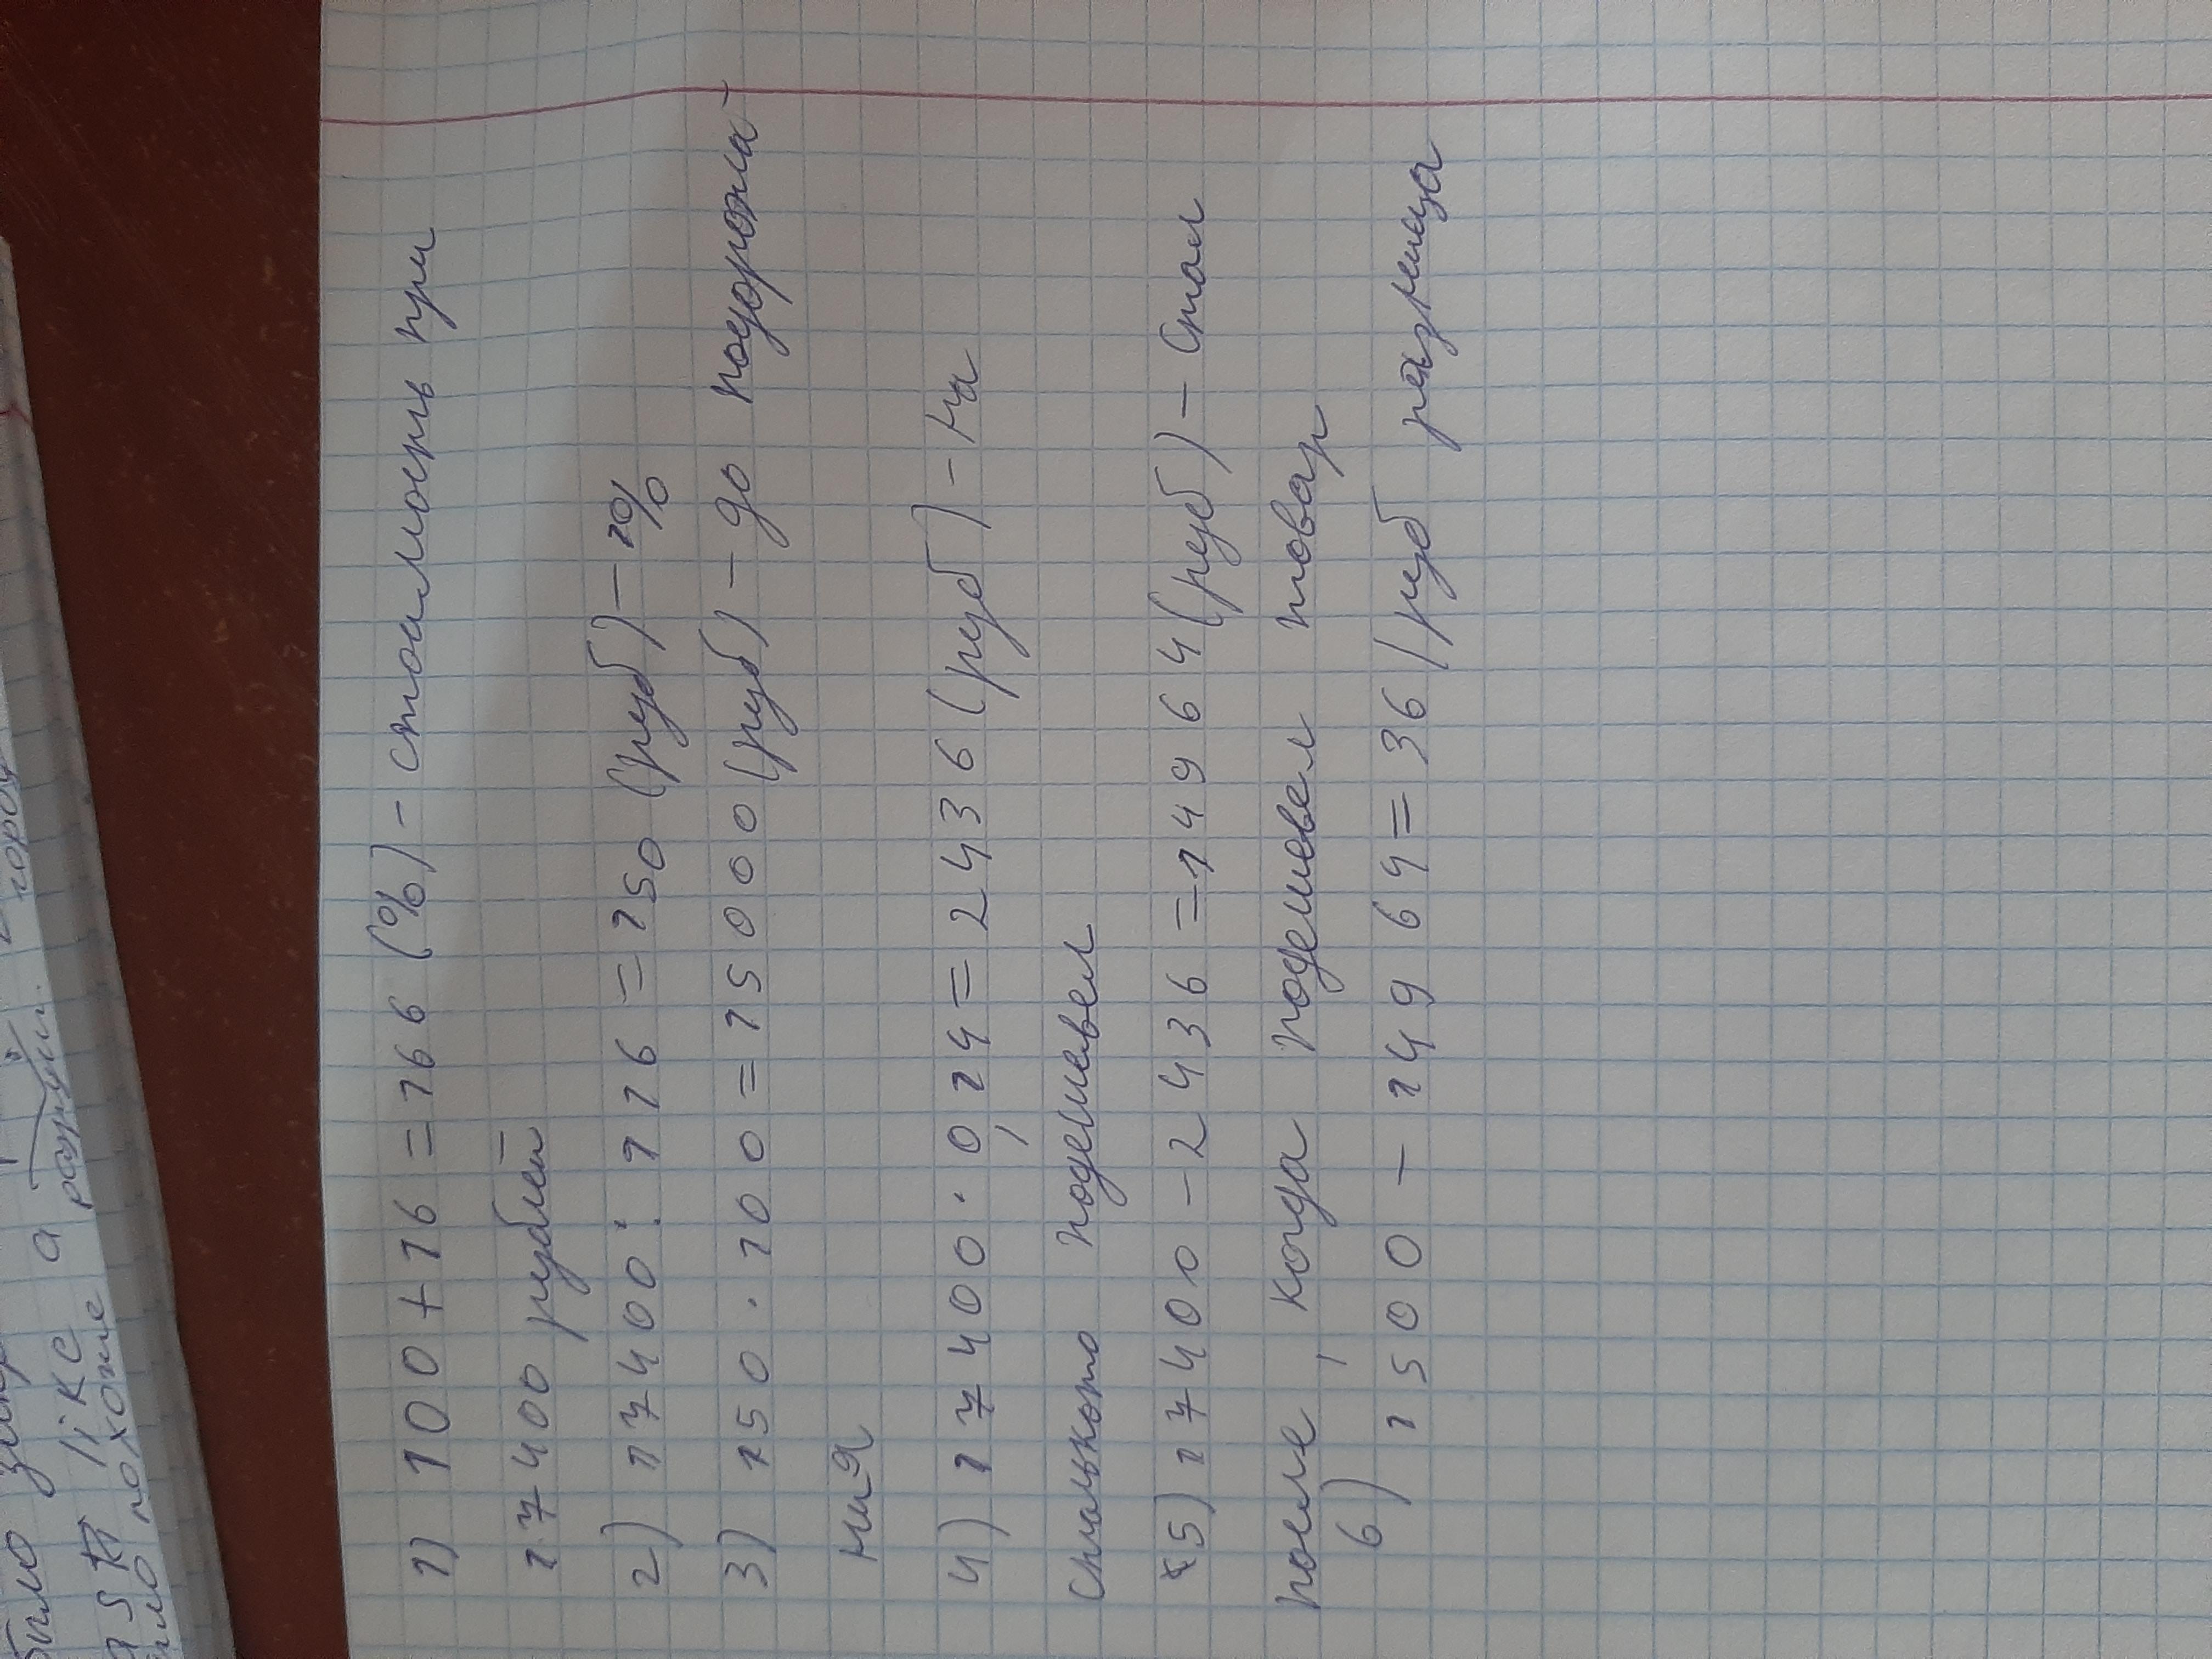 1) 100+16=166 (%) - стоимость при
17400 рублей
2) 17400:116=150 (руб) - 1%
3) 150·100=15000 (руб) - до подорожа-
ния
4) 17400·0,14=2436 (руб) - на
столькото подешевел
5) 17400-2436=14964 (руб) - стал
после, когда подешевел товар
6) 1500-14964=36 (руб разница
было
а
похоже